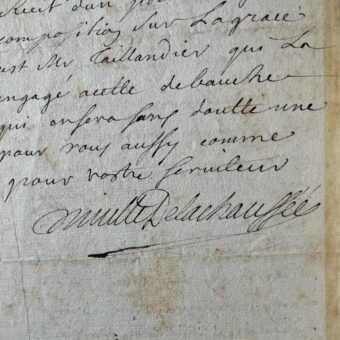 Recit d'un
composition sur Lagrace
est Mr Taillandier qui La
engagé a cette debauche
qui en sera sans doutte une
pour vous aussy comme
pour vostre serviteur
Delachaussée